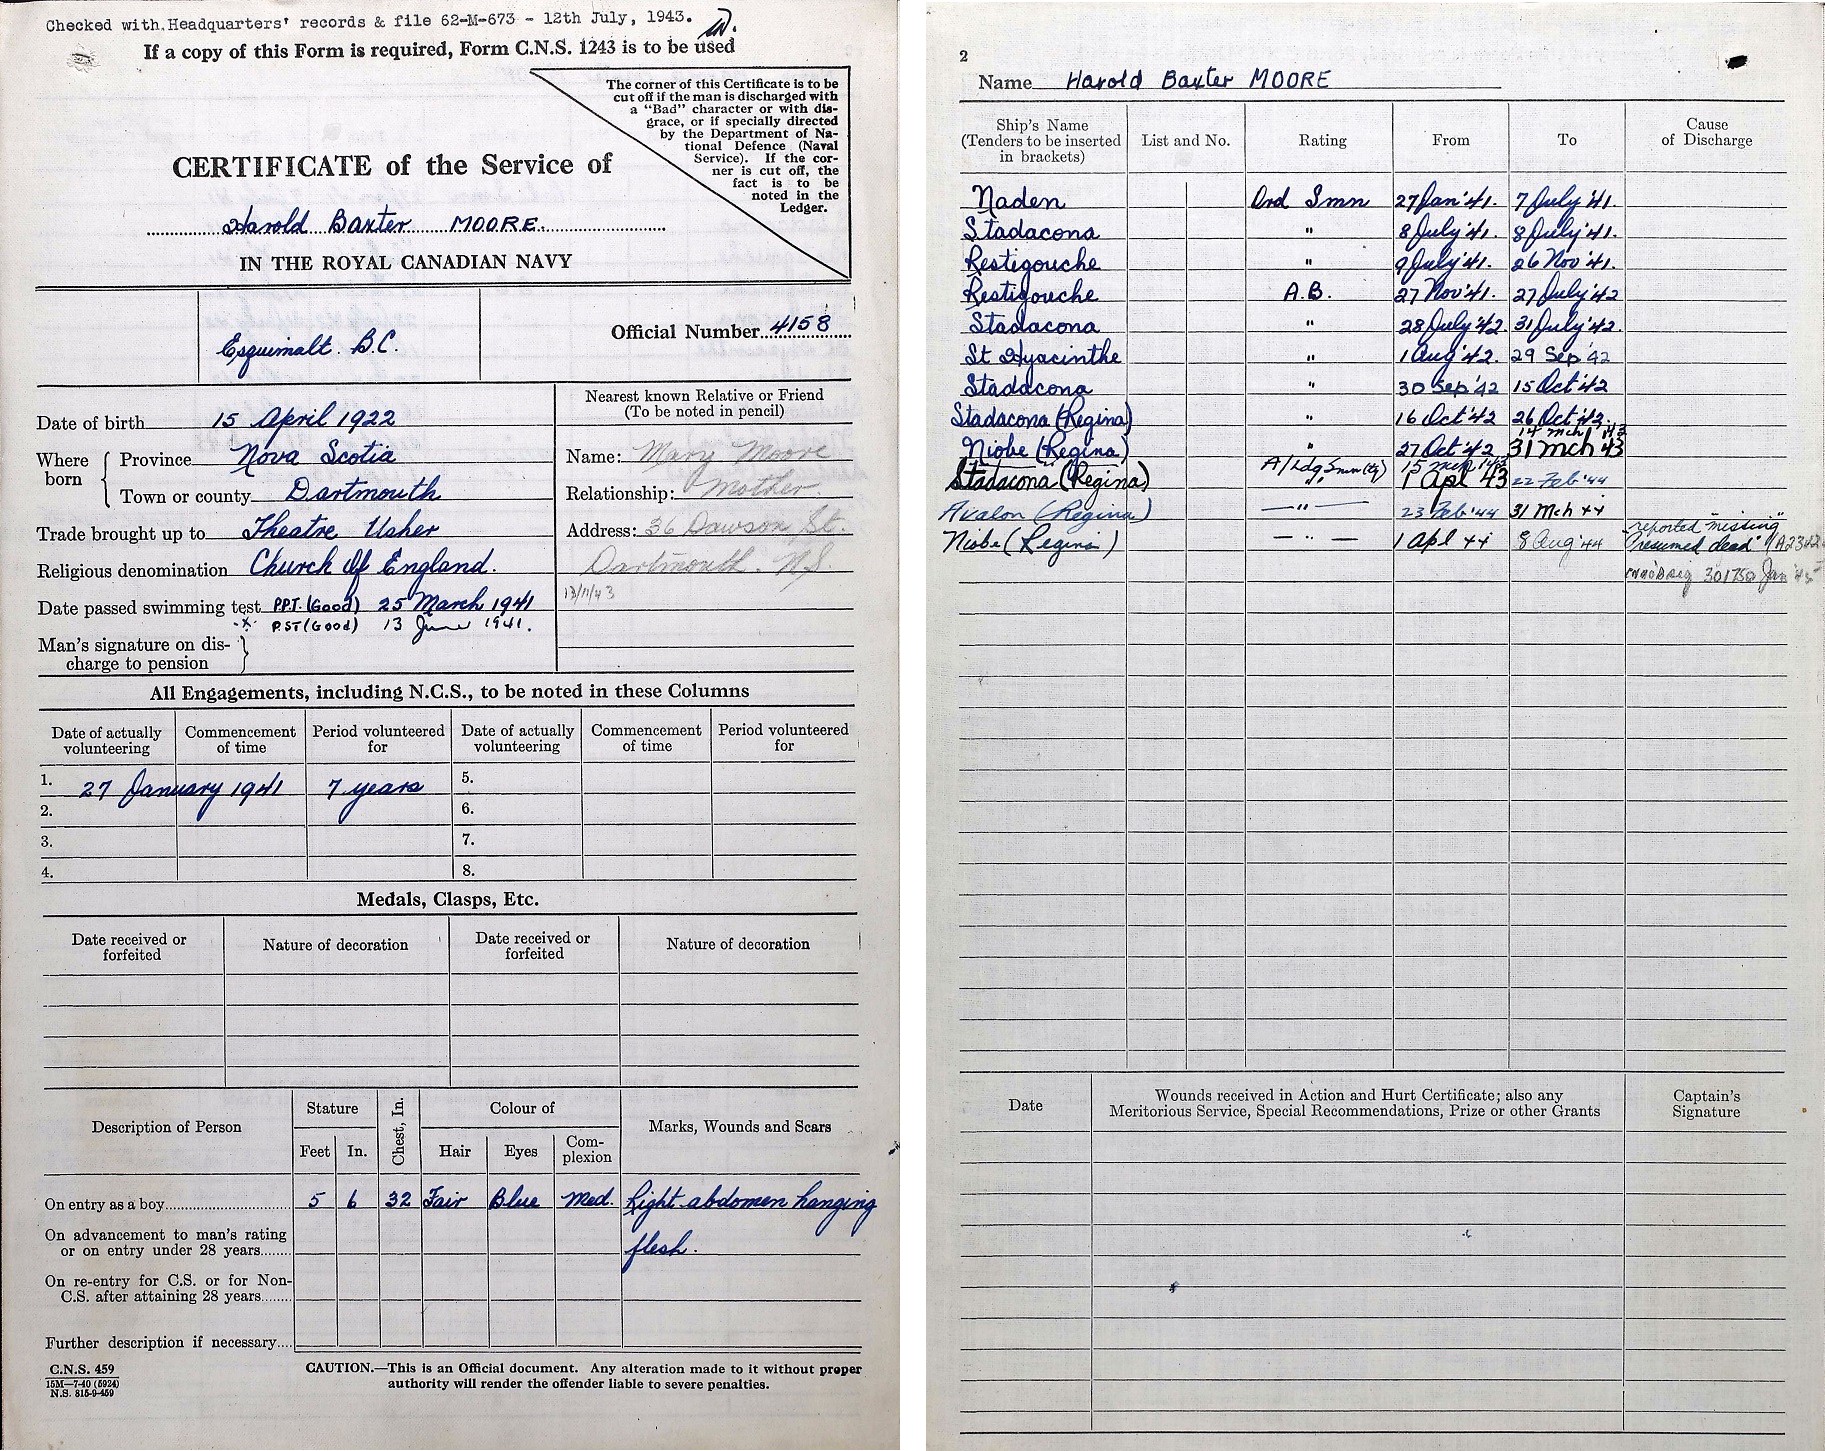 Checked with Headquarters' records & file 62-M-673 - 12th July, 1943.
If a copy of this Form is required, Form C.N.S. 1243 is to be used
The corner of this Certificate is to be
cut off if the man is discharged with
a "Bad" character or with dis-
grace, or if specially directed
by the Department of Na-
tional Defence (Naval
Service). If the cor-
ner is cut off, the
fact is to be
noted in the
Ledger.
CERTIFICATE of the Service of
Harold Baxter MOORE.
IN THE ROYAL CANADIAN NAVY
Esquimalt. B.C.
Official Number 4158
Date of birth 15 April 1922
Where born
Province Nova Scotia
Town or county Dartmouth
Trade brought up to Theatre Usher
Religious denomination Church Of England.
Date passed swimming test P.P.T. (Good) 25 March 1941
P.S.T (Good) 13 June 1941.
Man's signature on dis-
charge to pension
Nearest known Relative or Friend
(To be noted in pencil)
Name: Mary Moore
Relationship: Mother
Address: 36 Dawson St.
Dartmouth. N.S.
13/11/43
All Engagements, including N.C.S., to be noted in these Columns
Date of actually volunteering Commencement of time Period volunteered for Date of actually volunteering Commencement of time Period volunteered for
1. 27 January 1941 7 years 5.
2. 6.
3. 7.
4. 8.
Medals, Clasps, Etc.
Date received or forfeited Nature of decoration Date received or forfeited Nature of decoration
Description of Person Stature Chest, In. Colour of Marks, Wounds and Scars
Feet In. Hair Eyes Com-plexion
On entry as a boy 5 6 32 Fair Blue Med. Right abdomen hanging
flesh.
On advancement to man's rating
or on entry under 28 years
On re-entry for C.S. or for Non-
C.S. after attaining 28 years
Further description if necessary
C.N.S. 459
15M—7-40 (5924)
N.S. 815-9-459
CAUTION.—This is an Official document. Any alteration made to it without proper
authority will render the offender liable to severe penalties.
2
Name Harold Baxter MOORE
Ship's Name (Tenders to be inserted in brackets) List and No. Rating From To Cause of Discharge
Naden Ord Smn 27 Jan '41. 7 July '41.
Stadacona " 8 July '41. 8 July '41.
Restigouche " 9 July '41. 26 Nov '41.
Restigouche A.B. 27 Nov '41. 27 July '42
Stadacona " 28 July '42. 31 July '42.
St Hyacinthe " 1 Aug '42. 29 Sep '42
Stadacona " 30 Sep '42 15 Oct '42
Stadacona (Regina) " 16 Oct '42 26 Oct '42.
14 mch '43
Niobe (Regina) " 27 Oct '42 31 mch 43
A/Ldg Smn (ty) 15 mch '43
Stadacona (Regina) " 1 Apl 43 22 Feb '44
Avalon (Regina) — " — 23 Feb '44 31 Mch 44
Niobe (Regina) — " — 1 Apl 44 8 Aug '44 reported "missing
presumed dead"
301750 Jan '45
Date Wounds received in Action and Hurt Certificate; also any Meritorious Service, Special Recommendations, Prize or other Grants Captain's Signature